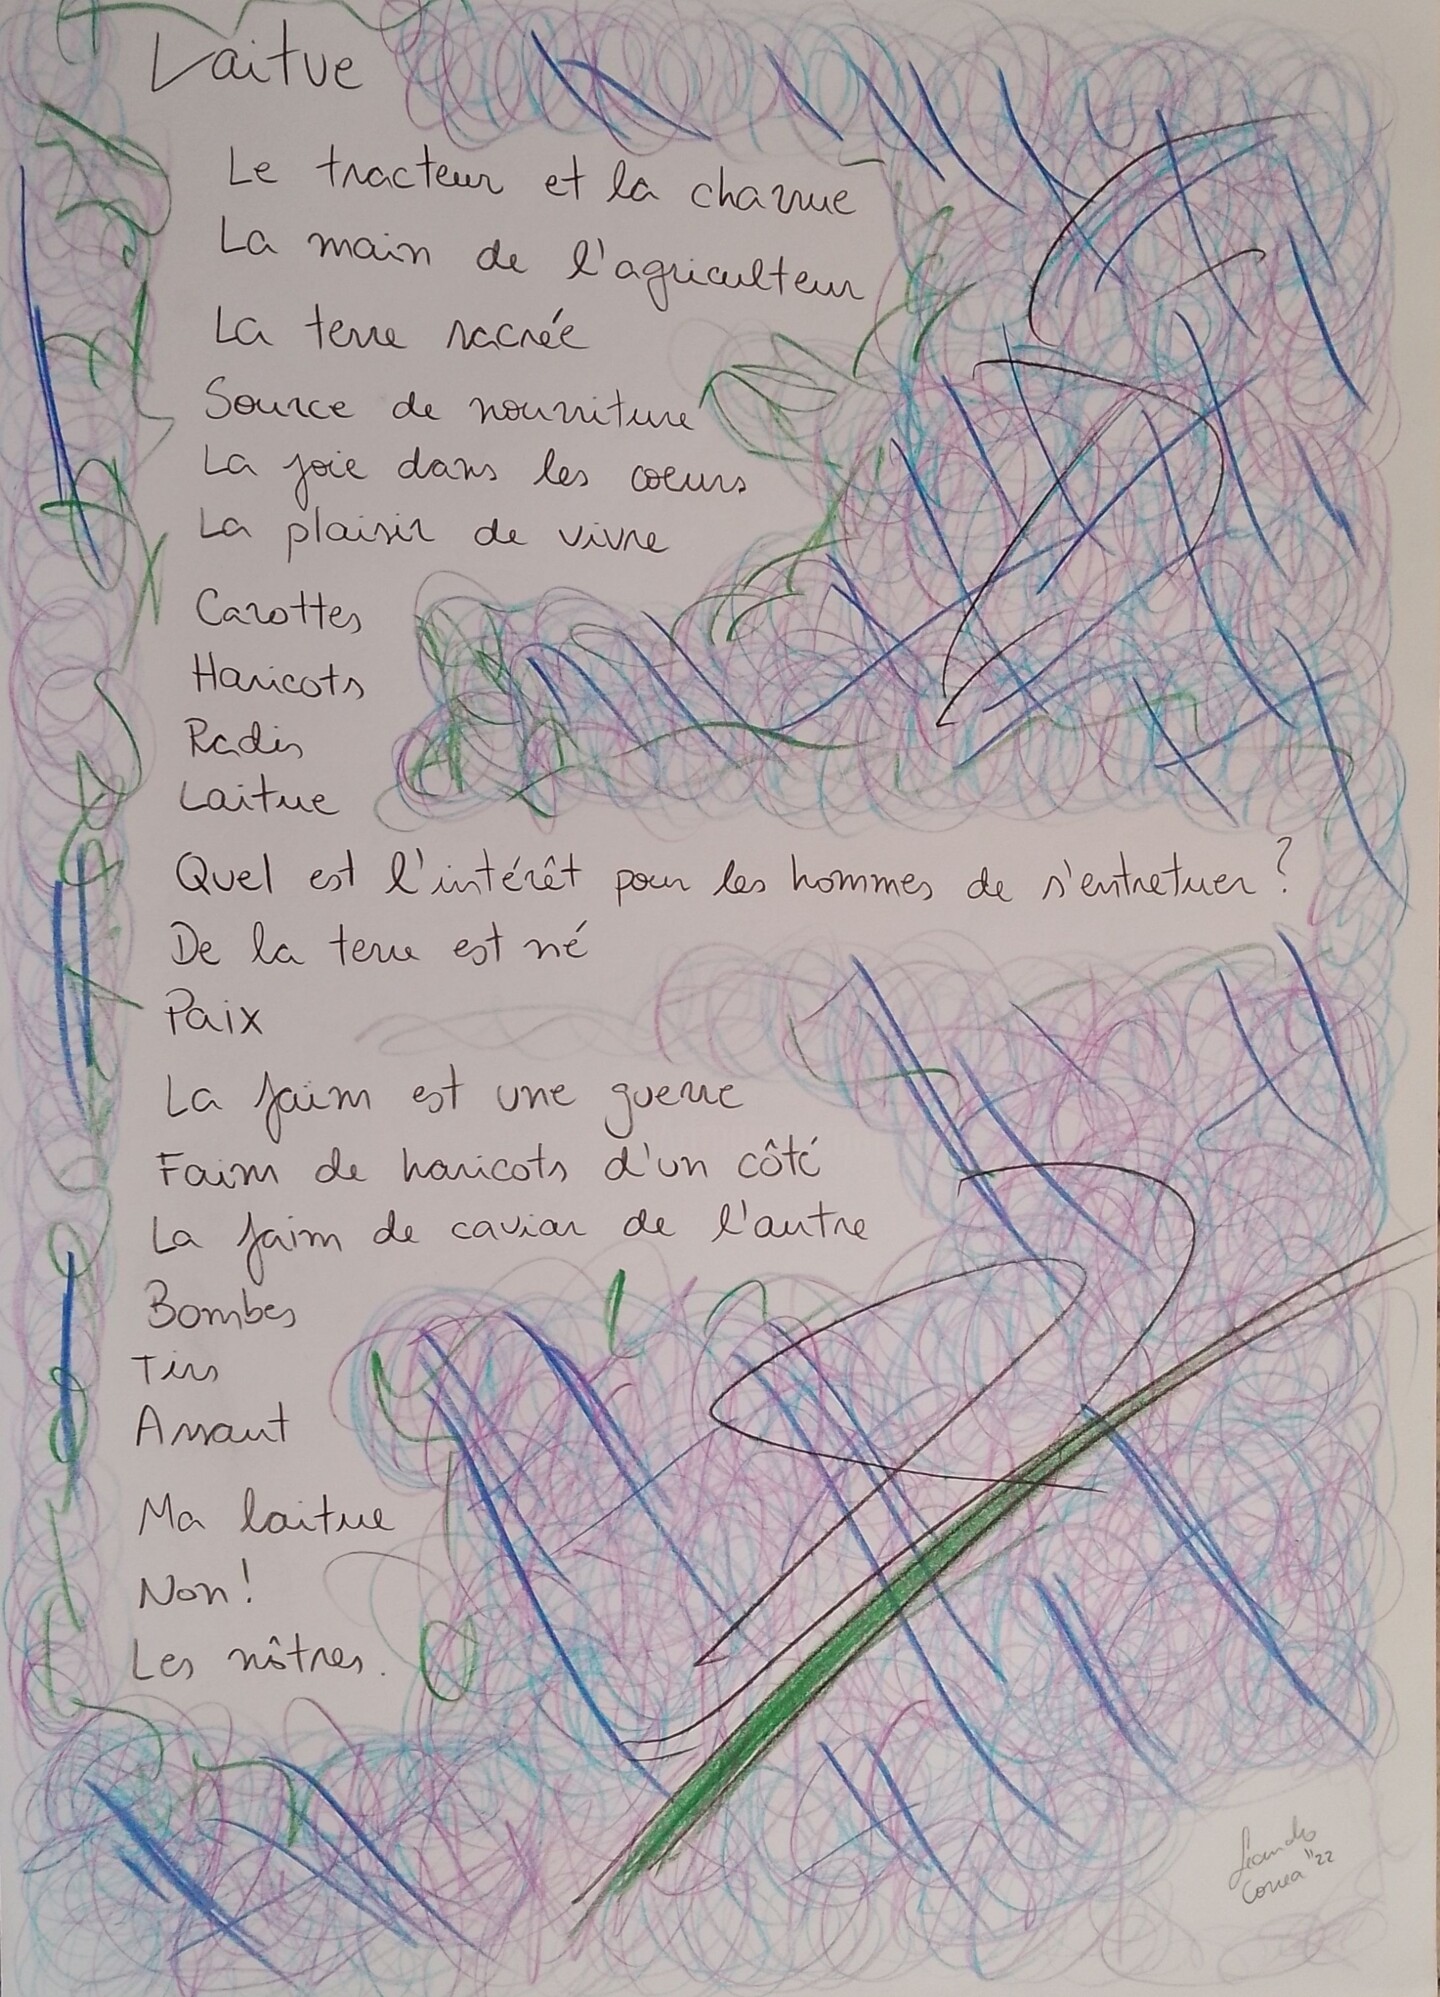 Laitue
Le tracteur et la charrue
La main de l'agriculteur
La terre sacrée
Source de nourriture
La joie dans les coeurs
La plaisir de vivre
Carottes
Haricots
Radis
Laitue
Quel est l'intérêt pour les hommes de s'entretuer ?
De la terre est né
Paix
La faim est une guerre
Faim de haricots d'un côté
La faim de caviar de l'autre
Bombes
Tirs
Assaut
Ma laitue
Non !
Les nôtres.
Leandro
Correa "22